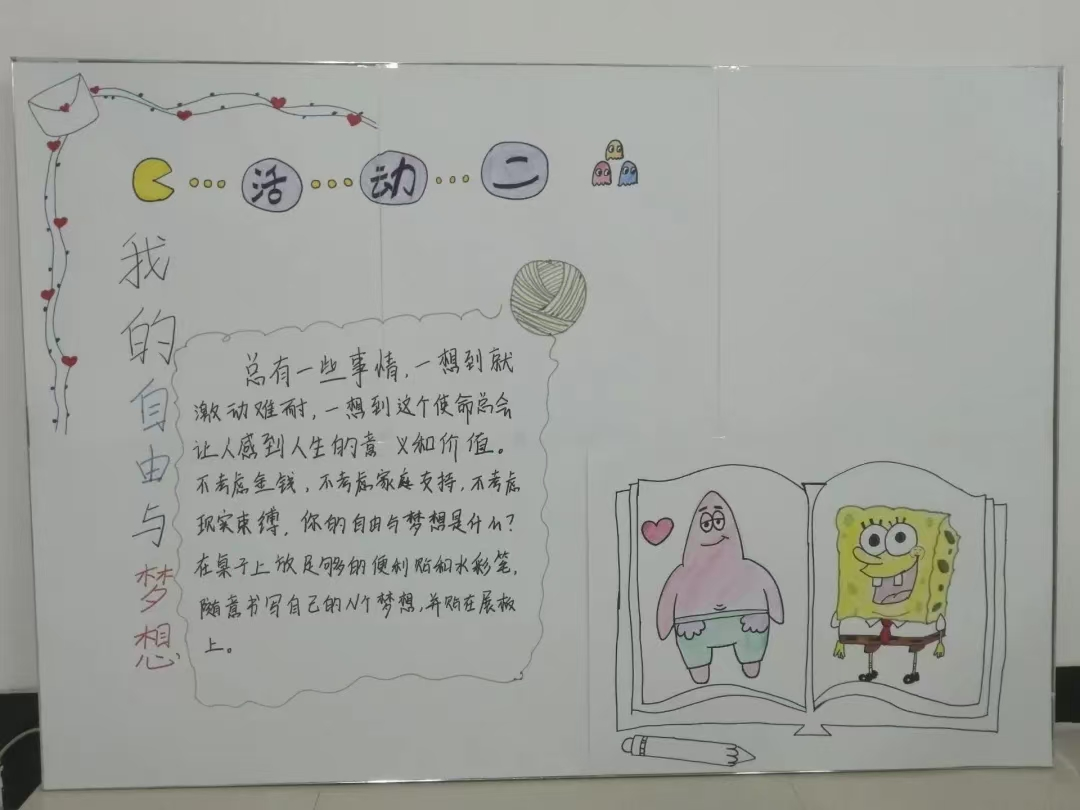 活动二
我的自由与梦想
总有一些事情,一想到就
激动难耐,一想到这个使命总会
让人感到人生的意义和价值。
不考虑金钱,不考虑家庭支持,不考虑
现实束缚,你的自由与梦想是什么?
在桌子上放足够的便利贴和水彩笔,
随意书写自己的N个梦想,并贴在展板
上。